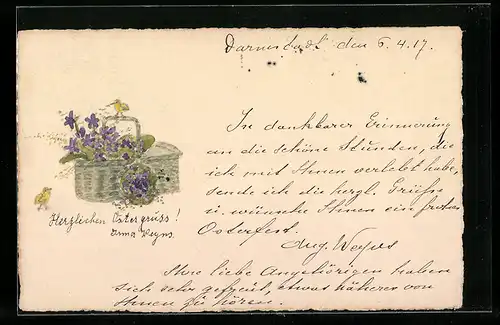 Darmstadt, den 6.4.17.
In dankbarer Erinnerung
an die schöne Stunden, die
ich mit Ihnen verlebt habe,
sende ich die herzl. Grüße
u. wünsche Ihnen ein frohes
Osterfest.
Aug. Weyns
Herzlichen Ostergruss!
Anna Weyns.
Ihre liebe Angehörigen haben
sich sehr gefreut, etwas näheres von
Ihnen zu hören.